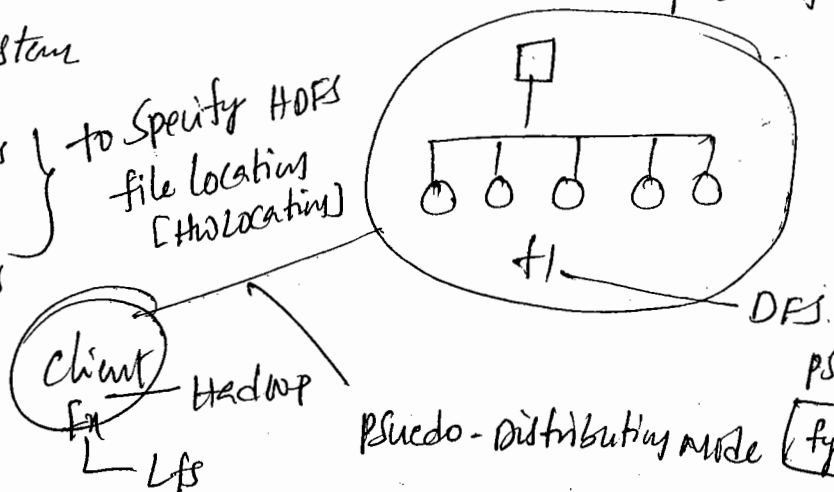 stem
to Specify HDFS
file Locations
[HW Locations]
f1
DFS.
Client
Hadoop
Lfs
Psuedo-Distributing mode
ps
fy